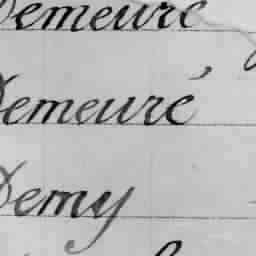 Demeuré
Demeuré
Demy